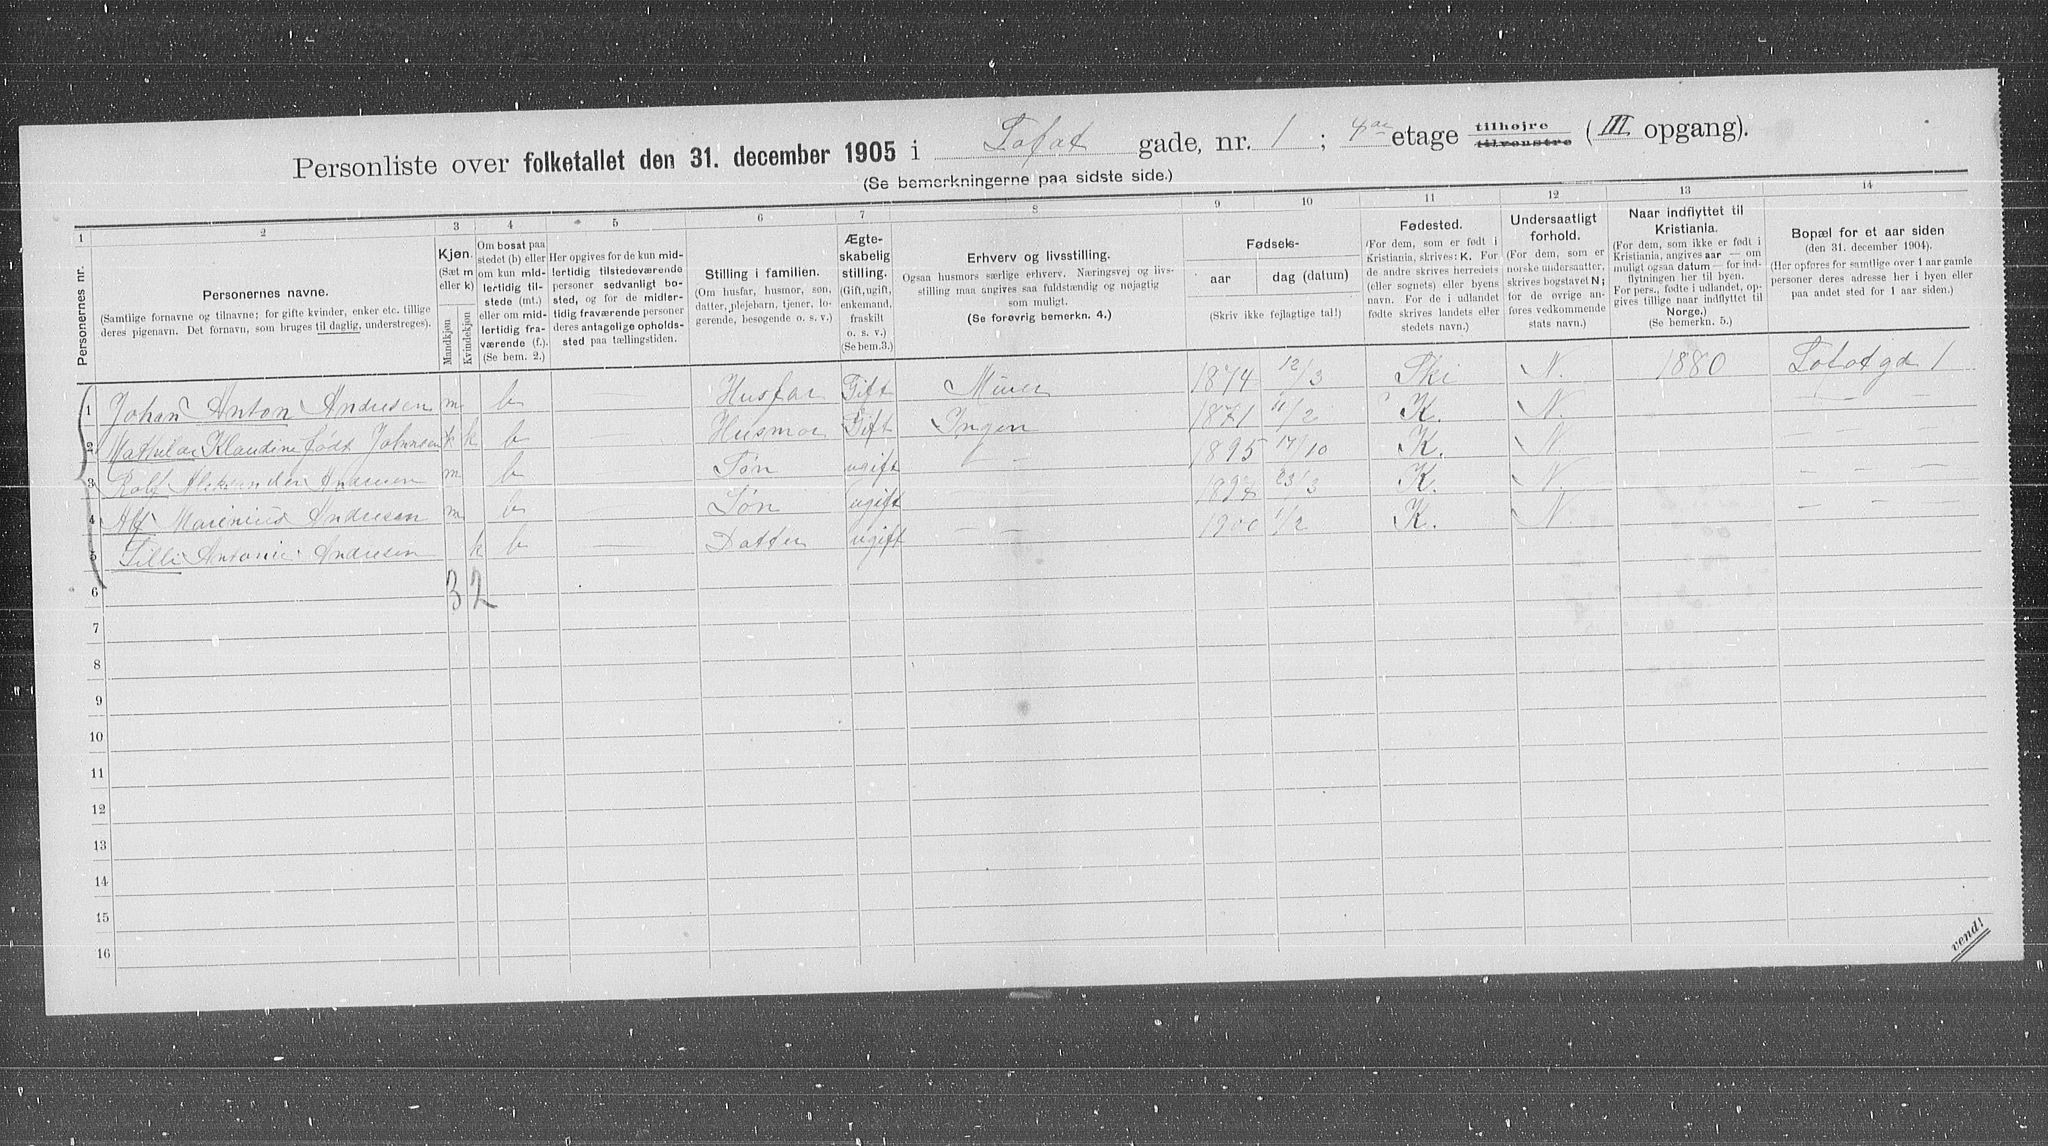 Personliste over folketallet den 31. december 1905 i Tofot gade, nr. 1; 4de etage tilhøjre tilvenstre (III opgang).
(Se bemerkningerne paa sidste side.)
1 2 3 4 5 6 7 8 9 10 11 12 13 14
Personernes nr.
Personernes navne.
(Samtlige fornavne og tilnavne; for gifte kvinder, enker etc. tillige deres pigenavn. Det fornavn, som bruges til daglig, understreges).
Kjøn.
(Sæt m eller k)
Mandkjøn
Kvindekjøn
Om bosat paa stedet (b) eller om kun midlertidig tilstede (mt.) eller om midlertidig fraværende (f.). (Se bem. 2.)
Her opgives for de kun midlertidig tilstedeværende personer sedvanligt bosted, og for de midlertidig fraværende personer deres antagelige opholdssted paa tællingstiden.
Stilling i familien.
(Om husfar, husmor, søn, datter, plejebarn, tjener, logerende, besøgende o. s. v.)
Ægteskabelig stilling.
(Gift, ugift, enkemand, fraskilt o. s. v.) (Se bem. 3.)
Erhverv og livsstilling.
Ogsaa husmors særlige erhverv. Næringsvej og livsstilling maa angives saa fuldstændig og nøjagtig som muligt.
(Se forøvrig bemerkn. 4.)
Fødsels-
aar dag (datum)
(Skriv ikke fejlagtige tal!)
Fødested.
(For dem, som er født i Kristiania, skrives: K. For de andre skrives herredets (eller sognets) eller byens navn. For de i udlandet fødte skrives landets eller stedets navn.)
Undersaatligt forhold.
(For dem, som er norske undersaatter, skrives bogstavet N; for de øvrige anføres vedkommende stats navn.)
Naar indflyttet til Kristiania.
(For dem, som ikke er født i Kristiania, angives aar — om muligt ogsaa datum — for indflytningen her til byen. For pers., fødte i udlandet, opgives tillige naar indflyttet til Norge.)
(Se bemerkn. 5.)
Bopæl for et aar siden
(den 31. december 1904).
(Her opføres for samtlige over 1 aar gamle personer deres adresse her i byen eller paa andet sted for 1 aar siden.)
1 Johan Anton Andresen m b Husfar Gift Murer 1874 12/3 Ski N. 1880 Tofotgd 1
2 Mathilde Klaudine født Johnsen k k b Husmor Gift Ingen 1871 11/2 K. N. — — —
3 Rolf Aleksander Andresen m b Søn ugift — — 1895 17/10 K. N. — — —
4 Alf Marinius Andresen m b Søn ugift 1897 23/3 K. N. — — —
5 Lilli Antonie Andresen k b Datter ugift — — 1900 1/2 K. N. — — —
6 3 2
7
8
9
10
11
12
13
14
15
16
vend!